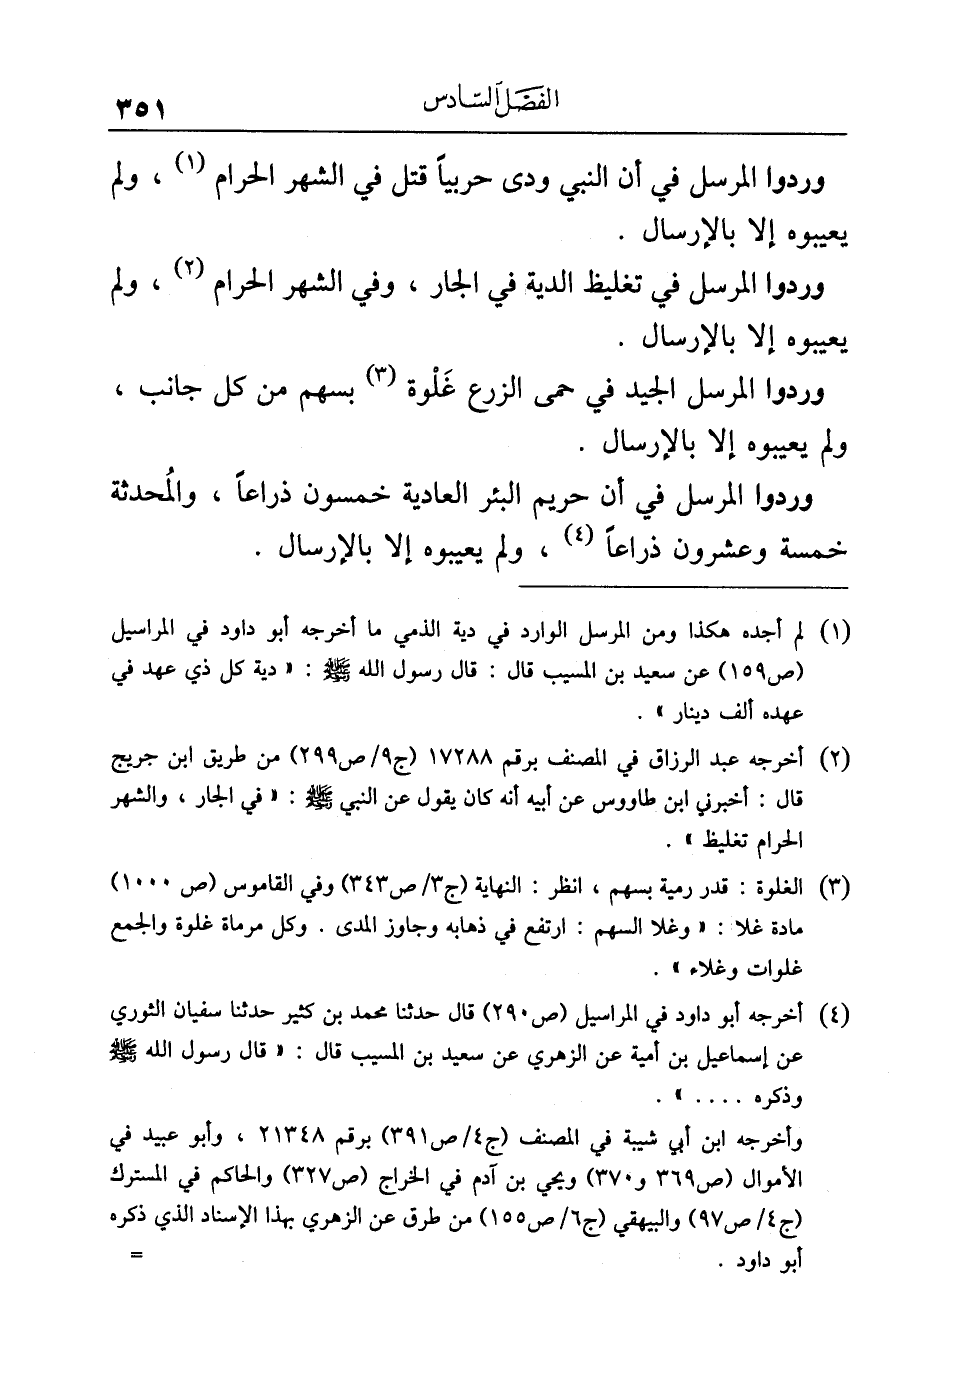 الفصل السادس
٣٥١
وردوا المرسل في أن النبي ودى حربياً قتل في الشهر الحرام (١) ، ولم
يعيبوه إلا بالإرسال .
وردوا المرسل في تغليظ الدية في الجار ، وفي الشهر الحرام (٢) ، ولم
يعيبوه إلا بالإرسال .
وردوا المرسل الجيد في حمى الزرع غَلْوة (٣) بسهم من كل جانب ،
ولم يعيبوه إلا بالإرسال .
وردوا المرسل في أن حريم البئر العادية خمسون ذراعاً ، والمُحدثة
خمسة وعشرون ذراعاً (٤) ، ولم يعيبوه إلا بالإرسال .
(١) لم أجده هكذا ومن المرسل الوارد في دية الذمي ما أخرجه أبو داود في المراسيل
(ص١٥٩) عن سعيد بن المسيب قال : قال رسول الله ﷺ : « دية كل ذي عهد في
عهده ألف دينار » .
(٢) أخرجه عبد الرزاق في المصنف برقم ١٧٢٨٨ (ج٩/ ص٢٩٩) من طريق ابن جريج
قال : أخبرني ابن طاووس عن أبيه أنه كان يقول عن النبي ﷺ : « في الجار ، والشهر
الحرام تغليظ » .
(٣) الغلوة : قدر رمية بسهم ، انظر : النهاية (ج٣/ ص٣٤٣) وفي القاموس (ص ١٠٠٠)
مادة غلا : « وغلا السهم : ارتفع في ذهابه وجاوز المدى . وكل مرماة غلوة والجمع
غلوات وغلاء » .
(٤) أخرجه أبو داود في المراسيل (ص٢٩٠) قال حدثنا محمد بن كثير حدثنا سفيان الثوري
عن إسماعيل بن أمية عن الزهري عن سعيد بن المسيب قال : « قال رسول الله ﷺ
وذكره .... » .
وأخرجه ابن أبي شيبة في المصنف (ج٤/ ص٣٩١) برقم ٢١٣٤٨ ، وأبو عبيد في
الأموال (ص٣٦٩ و٣٧٠) ويحي بن آدم في الخراج (ص٣٢٧) والحاكم في المسترك
(ج٤/ ص٩٧) والبيهقي (ج٦/ ص١٥٥) من طرق عن الزهري بهذا الإسناد الذي ذكره
أبو داود . =